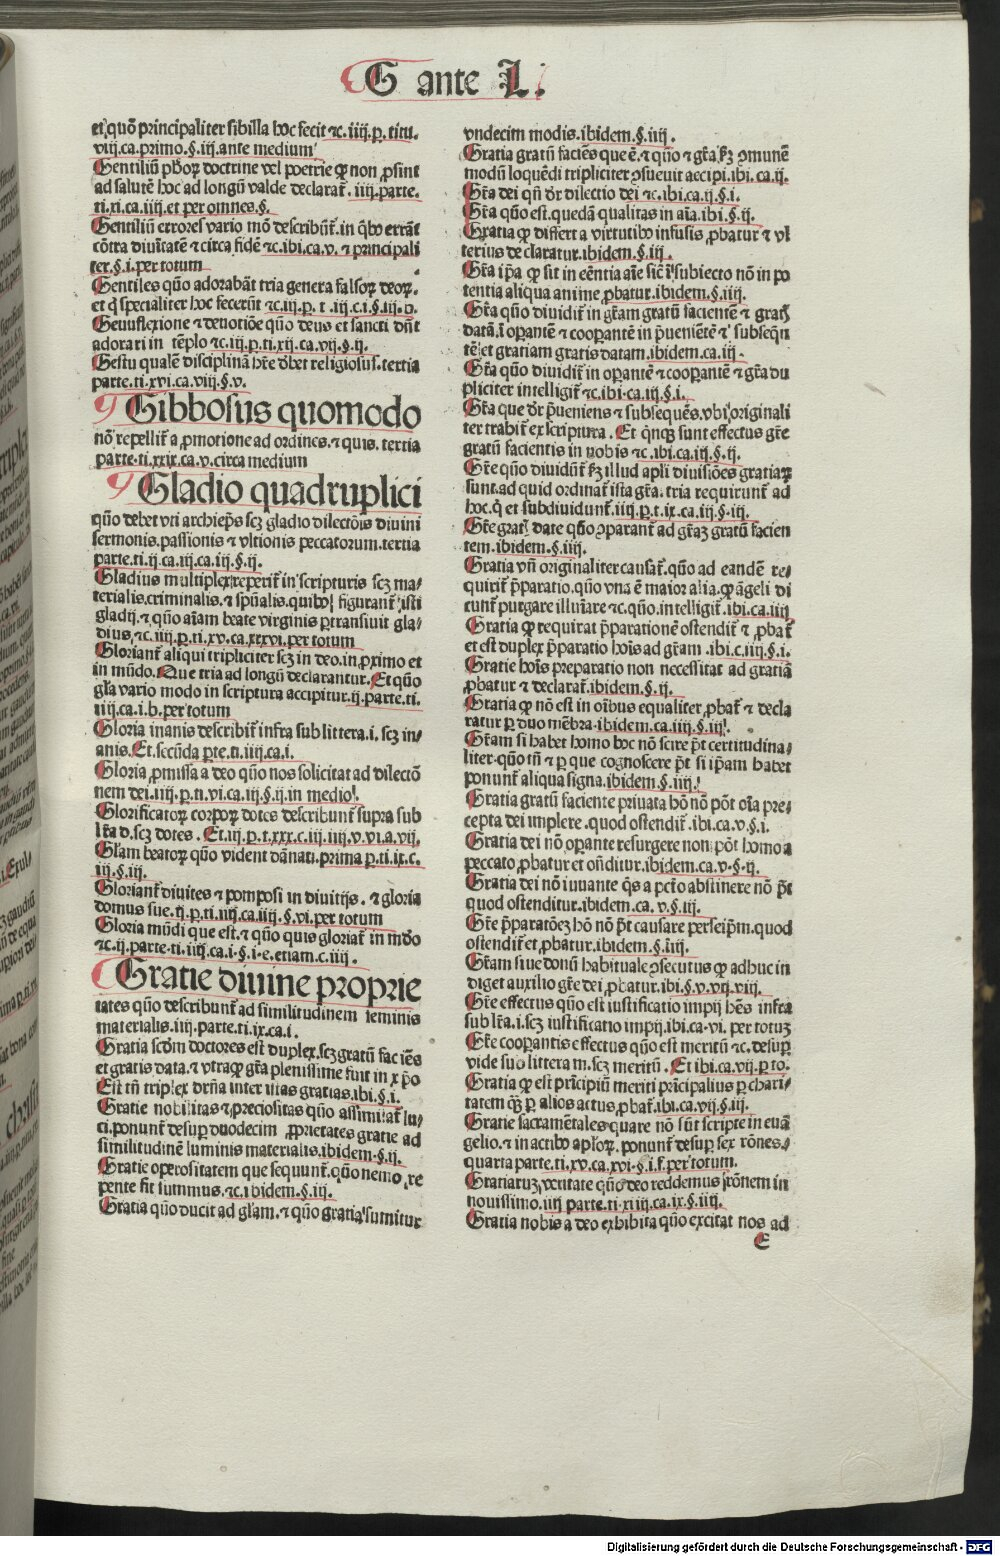 G ante L.
et quō principaliter sibilla hoc fecit ⁊c. iiij. p. titu.
viij. ca. primo. §. iij. ante medium
Gentiliū ꝓborꝝ doctrine vel poetrie ꝙ non ꝓsint
ad salutē hoc ad longū valde declarat̄. iiij. parte.
ti. xi. ca. iiij. et per omnes. §.
Gentiliū errores vario mō describūt̄. in qbo errāt
cōtra diuītatē ⁊ circa fidē ⁊c. ibi. ca. v. ⁊ principali
ter. §. i. per totum
Gentiles qūo adorabāt tria genera falsoꝝ deoꝝ.
et q̄ specialiter hoc fecerūt ⁊c. iij. p. t. iij. c. i. §. iij. d.
Genuflexione ⁊ deuotiōe qūo deus et sancti dn̄t
adorari in tēplo ⁊c. iij. p. ti. xij. ca. vij. §. ij.
Gestu qualē disciplinā hr̄e dꝫbet religiosus. tertia
parte. ti. xvi. ca. viij. §. v.
Gibbosus quomodo
nō repellit̄ a ꝓmotione ad ordines. ⁊ quis. tertia
parte. ti. xxix. ca. v. circa medium
Gladio quadruplici
qūo debet vti archiep̄s scꝫ gladio dilectōis diuini
sermonis. passionis ⁊ vltionis peccatorum. tertia
parte. ti. ij. ca. iij. ca. iij. §. ij.
Gladius multiplex reperit̄ in scripturis scꝫ ma/
terialis. criminalis. ⁊ sp̄ualis. quibꝰ figurant̄ isti
gladij. ⁊ qūo aīam beate virginis ꝑtransiuit gla/
dius, ⁊c. iiij. p. ti. xv. ca. xxxvi. per totum
Gloriant̄ aliqui tripliciter scꝫ in deo. in ꝓximo et
in mūdo. Que tria ad longū declarantur. Et qūo
gl̄a vario modo in scriptura accipitur. ij. parte. ti.
iiij. ca. i. b. per totum
Gloria inanis describit̄ infra sub littera. i. scꝫ in/
anis. Et. secūda ꝑte. ti. iiij. ca. i.
Gloria ꝓmissa a deo qūo nos solicitat ad dilectō
nem dei. iiij. p. ti. vi. ca. iij. §. ij. in medio.
Glorificatoꝝ corpoꝝ dotes describunt̄ supra sub
lr̄a d. scꝫ dotes. Et. iij. p. t. xxx. c. iij. iiij. v. vi. a. vij.
Gl̄am beatoꝝ qūo vident dānati. prima p. ti. ix. c.
iij. §. iij.
Gloriant̄ diuites ⁊ pomposi in diuitijs. ⁊ gloria
domus sue. ij. p. ti. iiij. ca. iij. §. vi. per totum
Gloria mūdi que est. ⁊ qūo quis gloriat̄ in mūdo
⁊c. ij. parte. ti. iiij. ca. i. §. i. e. etiam. c. iiij.
Gratie diuine proprie
tates qūo describunt̄ ad similitudinem seminis
materialis. iiij. parte. ti. ix. ca. i.
Gratia scd̄m doctores est duplex. scꝫ gratū faciēs
et gratis data. ⁊ vtraqꝫ gr̄a plenissime fuit in xp̄o
Est tn̄ triplex drn̄a inter illas gratias. ibi. §. i.
Gratie nobilitas ⁊ preciositas qūo assimilat̄ lu/
ci. ponunt̄ desuꝑ duodecim ꝓprietates gratie ad
similitudinē luminis materialis. ibidem. §. ij.
Gratie operositatem que sequunt̄. qūo nemo re
pente fit summus. ⁊c. ibidem. §. iij.
Gratia qūo ducit ad gl̄am. ⁊ quo gratia sumitur
vndecim modis. ibidem. §. iiij.
Gratia gratū faciēs que ē. ⁊ qūo ⁊ gr̄a ẜꝫ ꝯmunē
modū loquēdi tripliciter ꝯsueuit accipi. ibi. ca. ij.
Gr̄a dei qn̄ dr̄ dilectio dei ⁊c. ibi. ca. ij. §. i.
Gr̄a qūo est. quedā qualitas in aīa. ibi. §. ij.
Gratia ꝙ differt a virtutibꝰ infusis ꝓbatur ⁊ vl
terius declaratur. ibidem. §. iij.
Gr̄a ip̄a ꝙ sit in eēntia aīe sic̄ ī subiecto nō in po
tentia aliqua anime ꝓbatur. ibidem. §. iiij.
Gr̄a qūo diuidit̄ in gr̄am gratū facientē ⁊ gratꝭ
datā. ī operantē ⁊ cooperantē in p̄ueniētē ⁊ subseqūe
tē et gratiam gratis datam. ibidem. ca. iij.
Gr̄a qūo diuidit̄ in opantē ⁊ coopantē ⁊ gr̄a du
pliciter intelligit̄ ⁊c. ibi. ca. iij. §. i.
Gr̄a que dr̄ p̄ueniens ⁊ subsequēs. vbi originali
ter trahit̄ ex scriptura. Et qnqꝫ sunt effectus gr̄e
gratū facientis in nobis ⁊c. ibi. ca. iij. §. ij.
Gr̄e qūo diuidūt̄ ẜꝫ illud apl̄i diuisiōes gratiaꝝ
sunt. ad quid ordinat̄ ista gr̄a. tria requirunt̄ ad
hoc. q̄ et subdiuidunt̄. iiij. p. t. ix. ca. iij. §. iij.
Gr̄e gratꝭ date qūo ꝯparant̄ ad gr̄aꝫ gratū facien
tem. ibidem. §. iiij.
Gratia vn̄ originaliter causat̄. qūo ad eandē re/
quirit̄ p̄paratio. qūo vna ē maior alia. ꝙ āgeli di
cunt̄ purgare illuīare ⁊c. qūo. intelligit̄. ibi. ca. iiij
Gratia ꝙ requirat p̄parationē ostendit̄ ⁊ ꝓbat̄
et est duplex p̄paratio hoīs ad gr̄am. ibi. c. iiij. §. i.
Gratie hoīs preparatio non necessitat ad gratiā
ꝓbatur ⁊ declarat̄. ibidem. §. ij.
Gratia ꝙ nō est in oībus equaliter ꝓbat̄ ⁊ decla
ratur per duo mēbra. ibidem. ca. iiij. §. iij.
Gr̄am si habet homo hoc nō scire p̄t certitudina/
liter. qūo tn̄ ⁊ ꝑ que cognoscere p̄t si ip̄am habet
ponunt̄ aliqua signa. ibidem. §. iiij.
Gratia gratū faciente priuata hō nō pōt oīa pre/
cepta dei implere. quod ostendit̄. ibi. ca. v. §. i.
Gratia dei nō opante resurgere non pōt homo a
peccato ꝓbatur et oñditur. ibidem. ca. v. §. ij.
Gratia dei nō iuuante qs a pctō abstinere nō p̄t
quod ostenditur. ibidem. ca. v. §. iij.
Gr̄e p̄paratōeꝫ hō nō p̄t causare per seip̄m. quod
ostendit̄ et ꝓbatur. ibidem. §. iiij.
Gr̄am siue donū habituale ꝯsecutus ꝙ adhuc in
diget auxilio gr̄e dei ꝓbatur. ibi. §. v. vij. viij.
Gr̄e effectus qūo est iustificatio impij hēs infra
sub lr̄a. i. scꝫ iustificatio impij. ibi. ca. vi. per totuꝫ
Gr̄e coopantis effectus qūo est meritū ⁊c. desuꝑ
vide sub littera m. scꝫ meritū. Et ibi. ca. vij. ꝑ to.
Gratia ꝙ est prīcipiū meriti prīcipalius ꝑ chari/
tatem qꝫ ꝑ alios actus ꝓbat̄. ibi. ca. vij. §. iij.
Gratie sacramētales quare nō sūt scripte in euā
gelio. ⁊ in actibꝰ aploꝝ. ponunt̄ desuꝑ sex rōnes.
quarta parte. ti. xv. ca. xvi. §. i. f. per totum.
Gratiaruꝫ, veritate qūo deo reddemus rōnem in
nouissimo. iiij parte. ti. xiiij. ca. ix. §. iiij.
Gratia nobis a deo exhibita qūo excitat nos ad
E
Digitalisierung gefördert durch die Deutsche Forschungsgemeinschaft - DFG